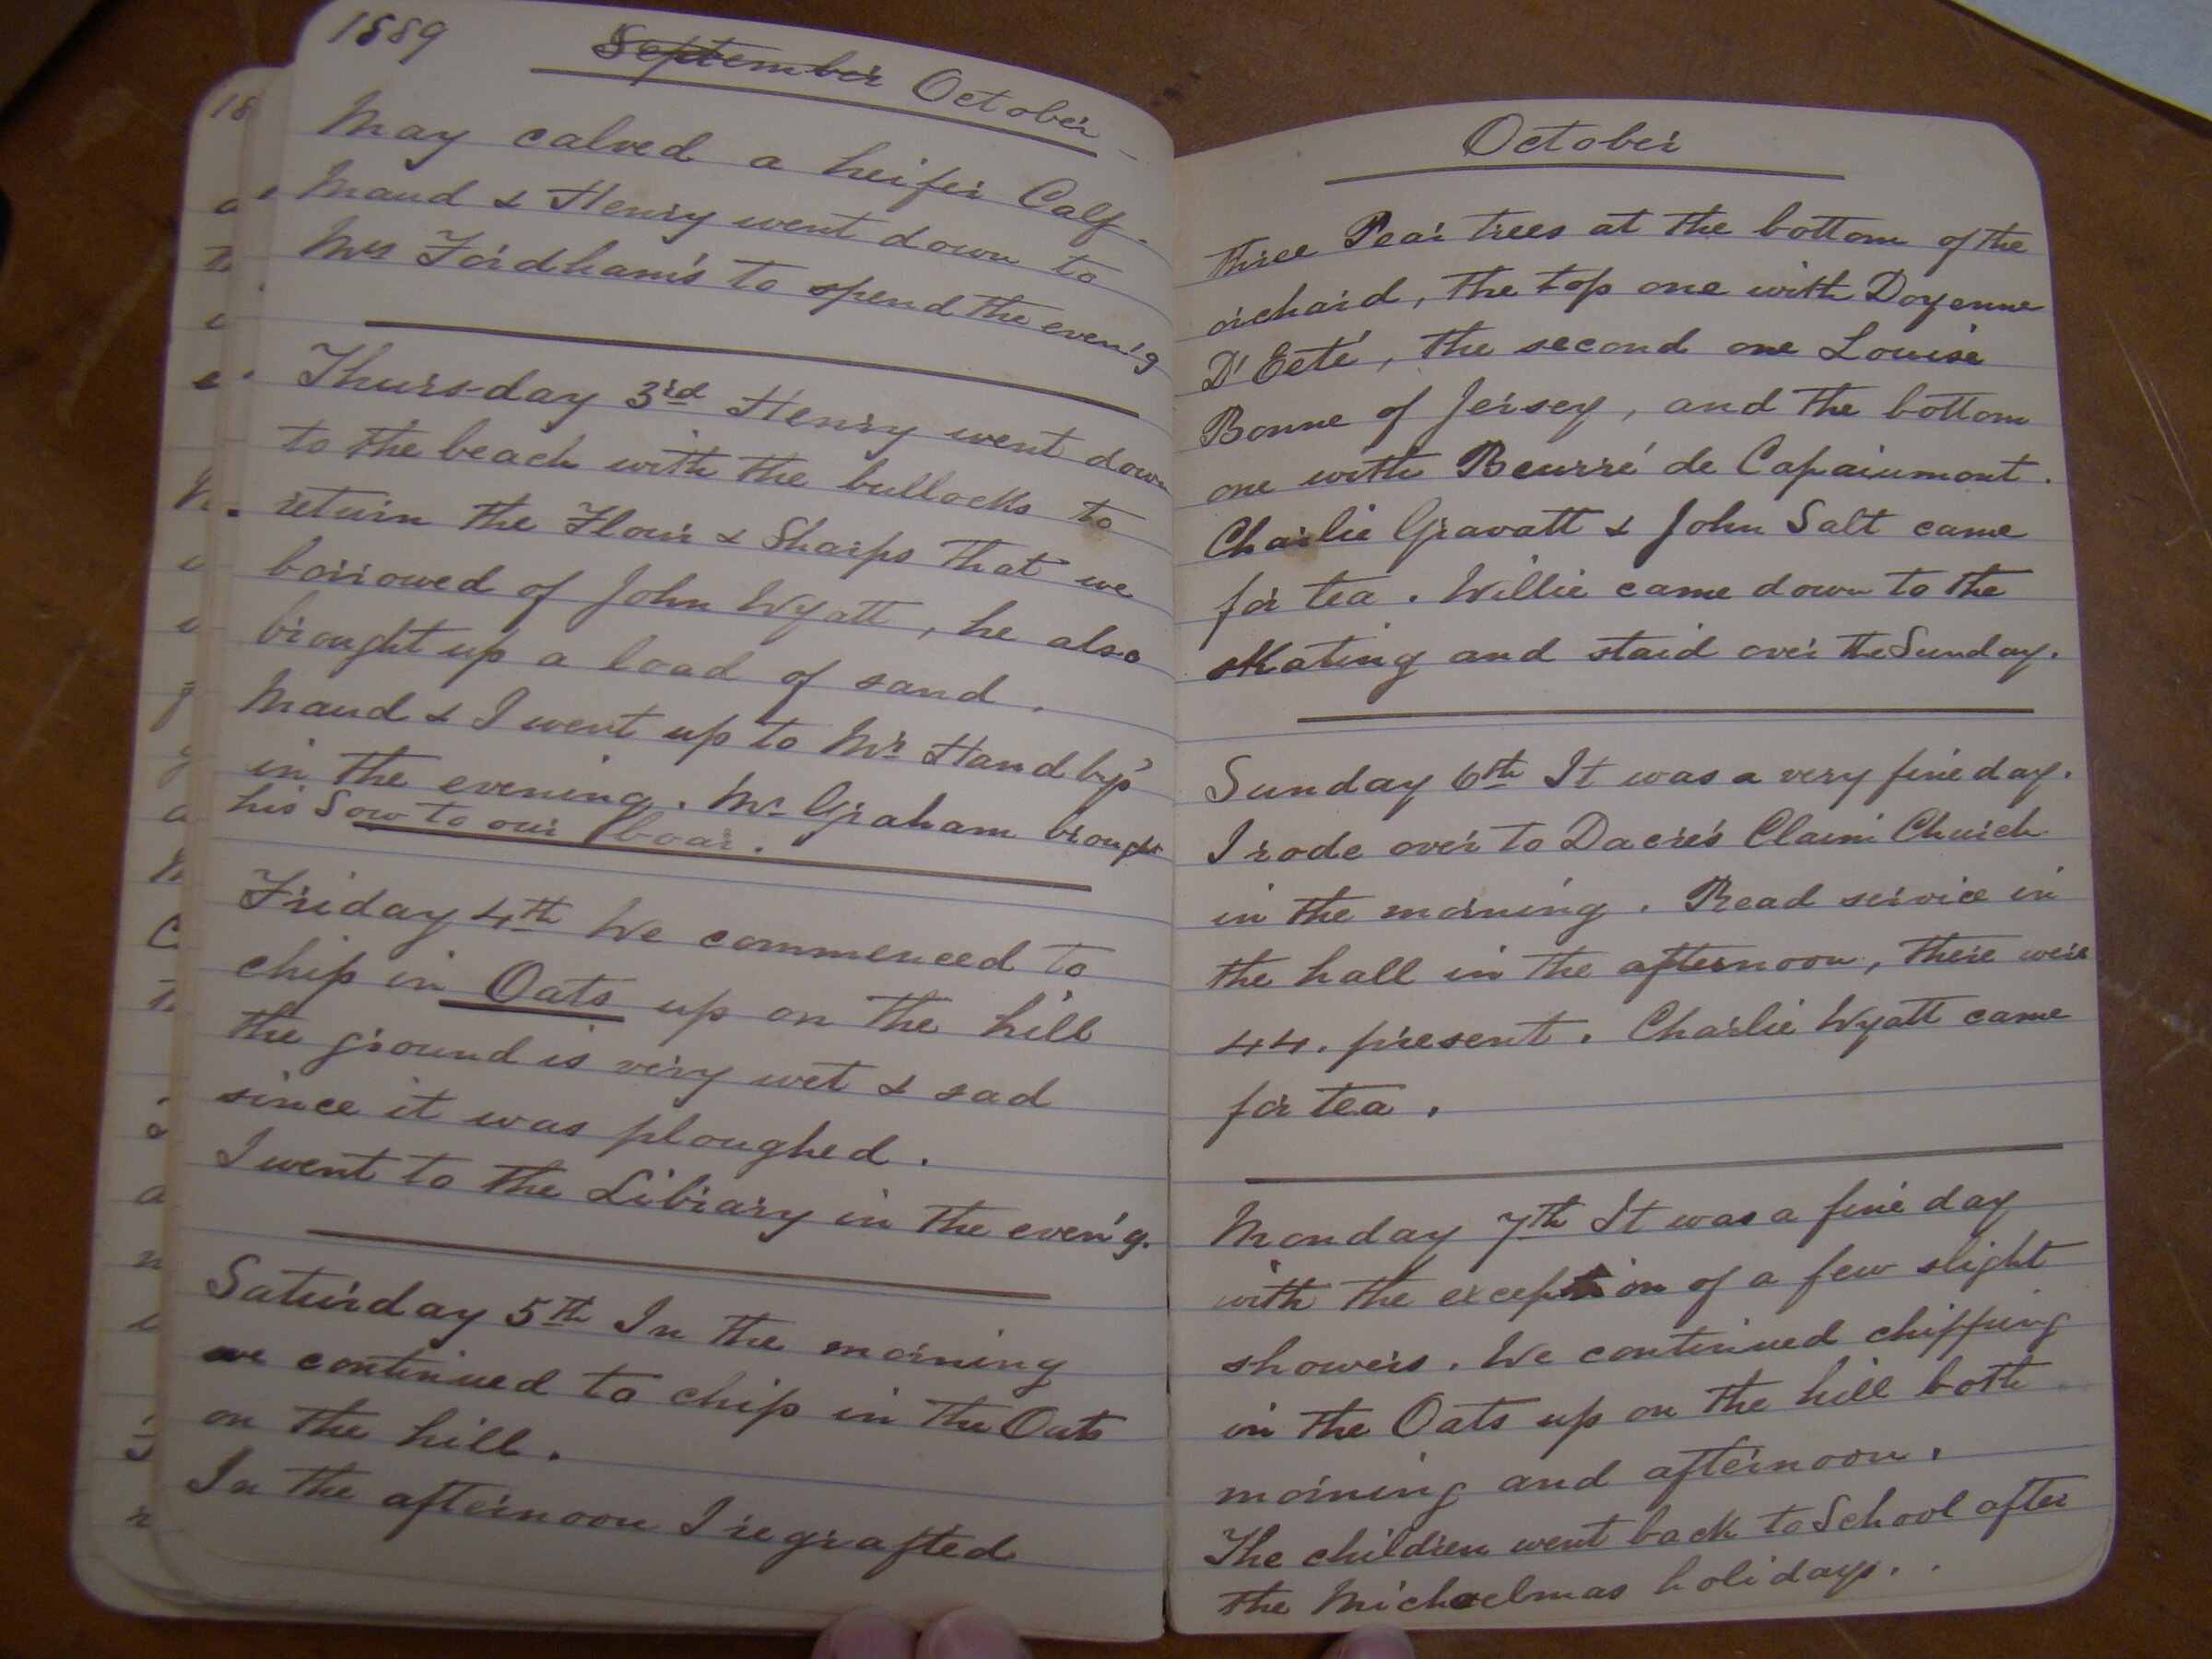 1889
September October
May calved a heifer Calf.
Maud & Henry went down to
Mrs Fordham's to spend the even'g
Thursday 3rd Henry went down
to the beach with the bullocks to
return the Flour & Sharps that we
borrowed of John Wyatt, he also
brought up a load of sand.
Maud & I went up to Mr Handbys'
in the evening. Mr Graham brought
his Sow to our boar.
Friday 4th We commenced to
chip in Oats up on the hill
the ground is very wet & sad
since it was ploughed.
I went to the Library in the even'g.
Saturday 5th In the morning
we continued to chip in the Oats
on the hill.
In the afternoon I regrafted
October
three Pear trees at the bottom of the
orchard, the top one with Doyenne
D'Eeté, the second one Louise
Bonne of Jersey, and the bottom
one with Beurré de Capaiumont.
Charlie Gravatt & John Salt came
for tea. Willie came down to the
skating and staid over the Sunday.
Sunday 6th It was a very fine day.
I rode over to Dacre's Claim Church
in the morning. Read service in
the hall in the afternoon, there were
44. present. Charlie Wyatt came
for tea.
Monday 7th It was a fine day
with the exception of a few slight
showers. We continued chipping
in the Oats up on the hill both
morning and afternoon.
The children went back to School after
the Michaelmas holidays.